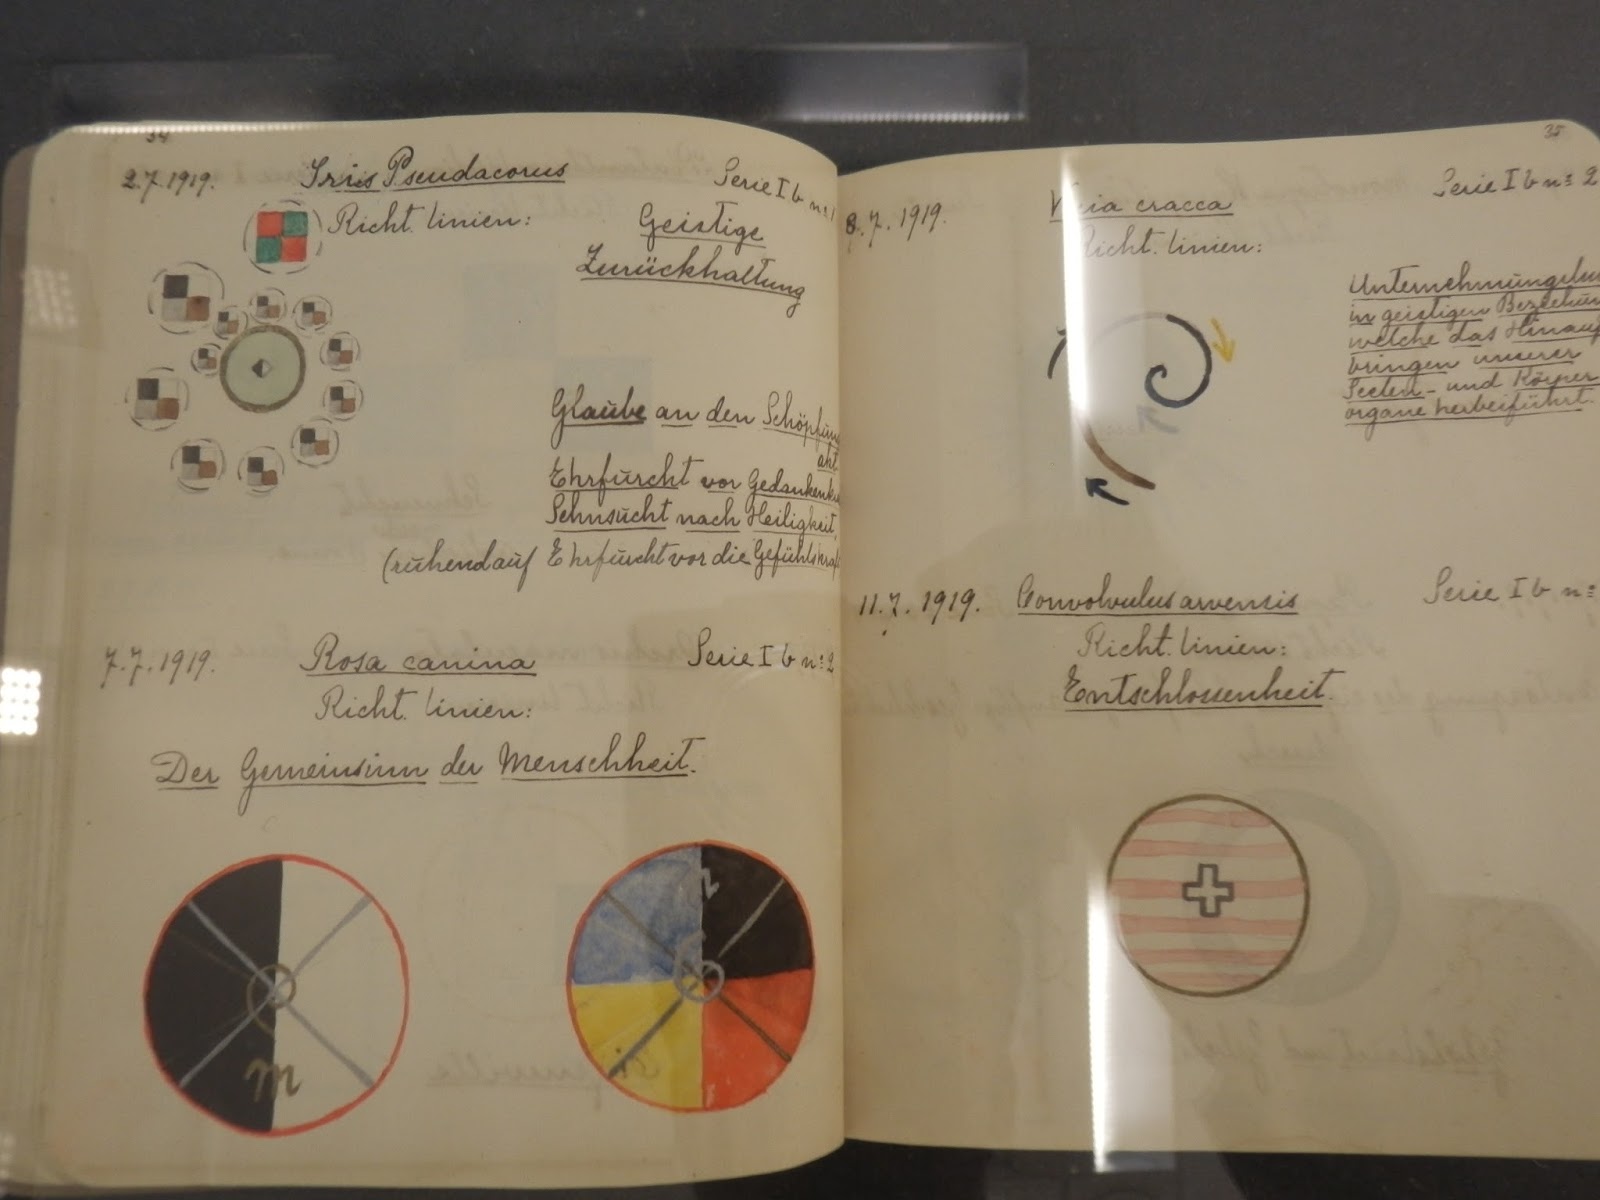 34
2.7.1919. Iris Pseudacorus Serie I b nº 1
Richt. linien: Geistige
Zurückhaltung
Glaube an den Schöpfungs
akt.
Ehrfurcht vor
Sehnsucht nach Heiligkeit.
(ruhend auf Ehrfurcht vor die Gefühlskraft
7.7.1919. Rosa canina Serie I b nº 2
Richt. linien:
Der Gemeinsinn der Menschheit.
m
35
8.7.1919. Vicia cracca Serie I b nº 2
Richt. linien:
Unternehmungslu
in geistigen Beziehun
welche das Hinauf
bringen unserer
Seelen- und Körper
organe herbeiführt.
11.7.1919. Convolvulus arvensis Serie I b nº
Richt. linien:
Entschlossenheit.